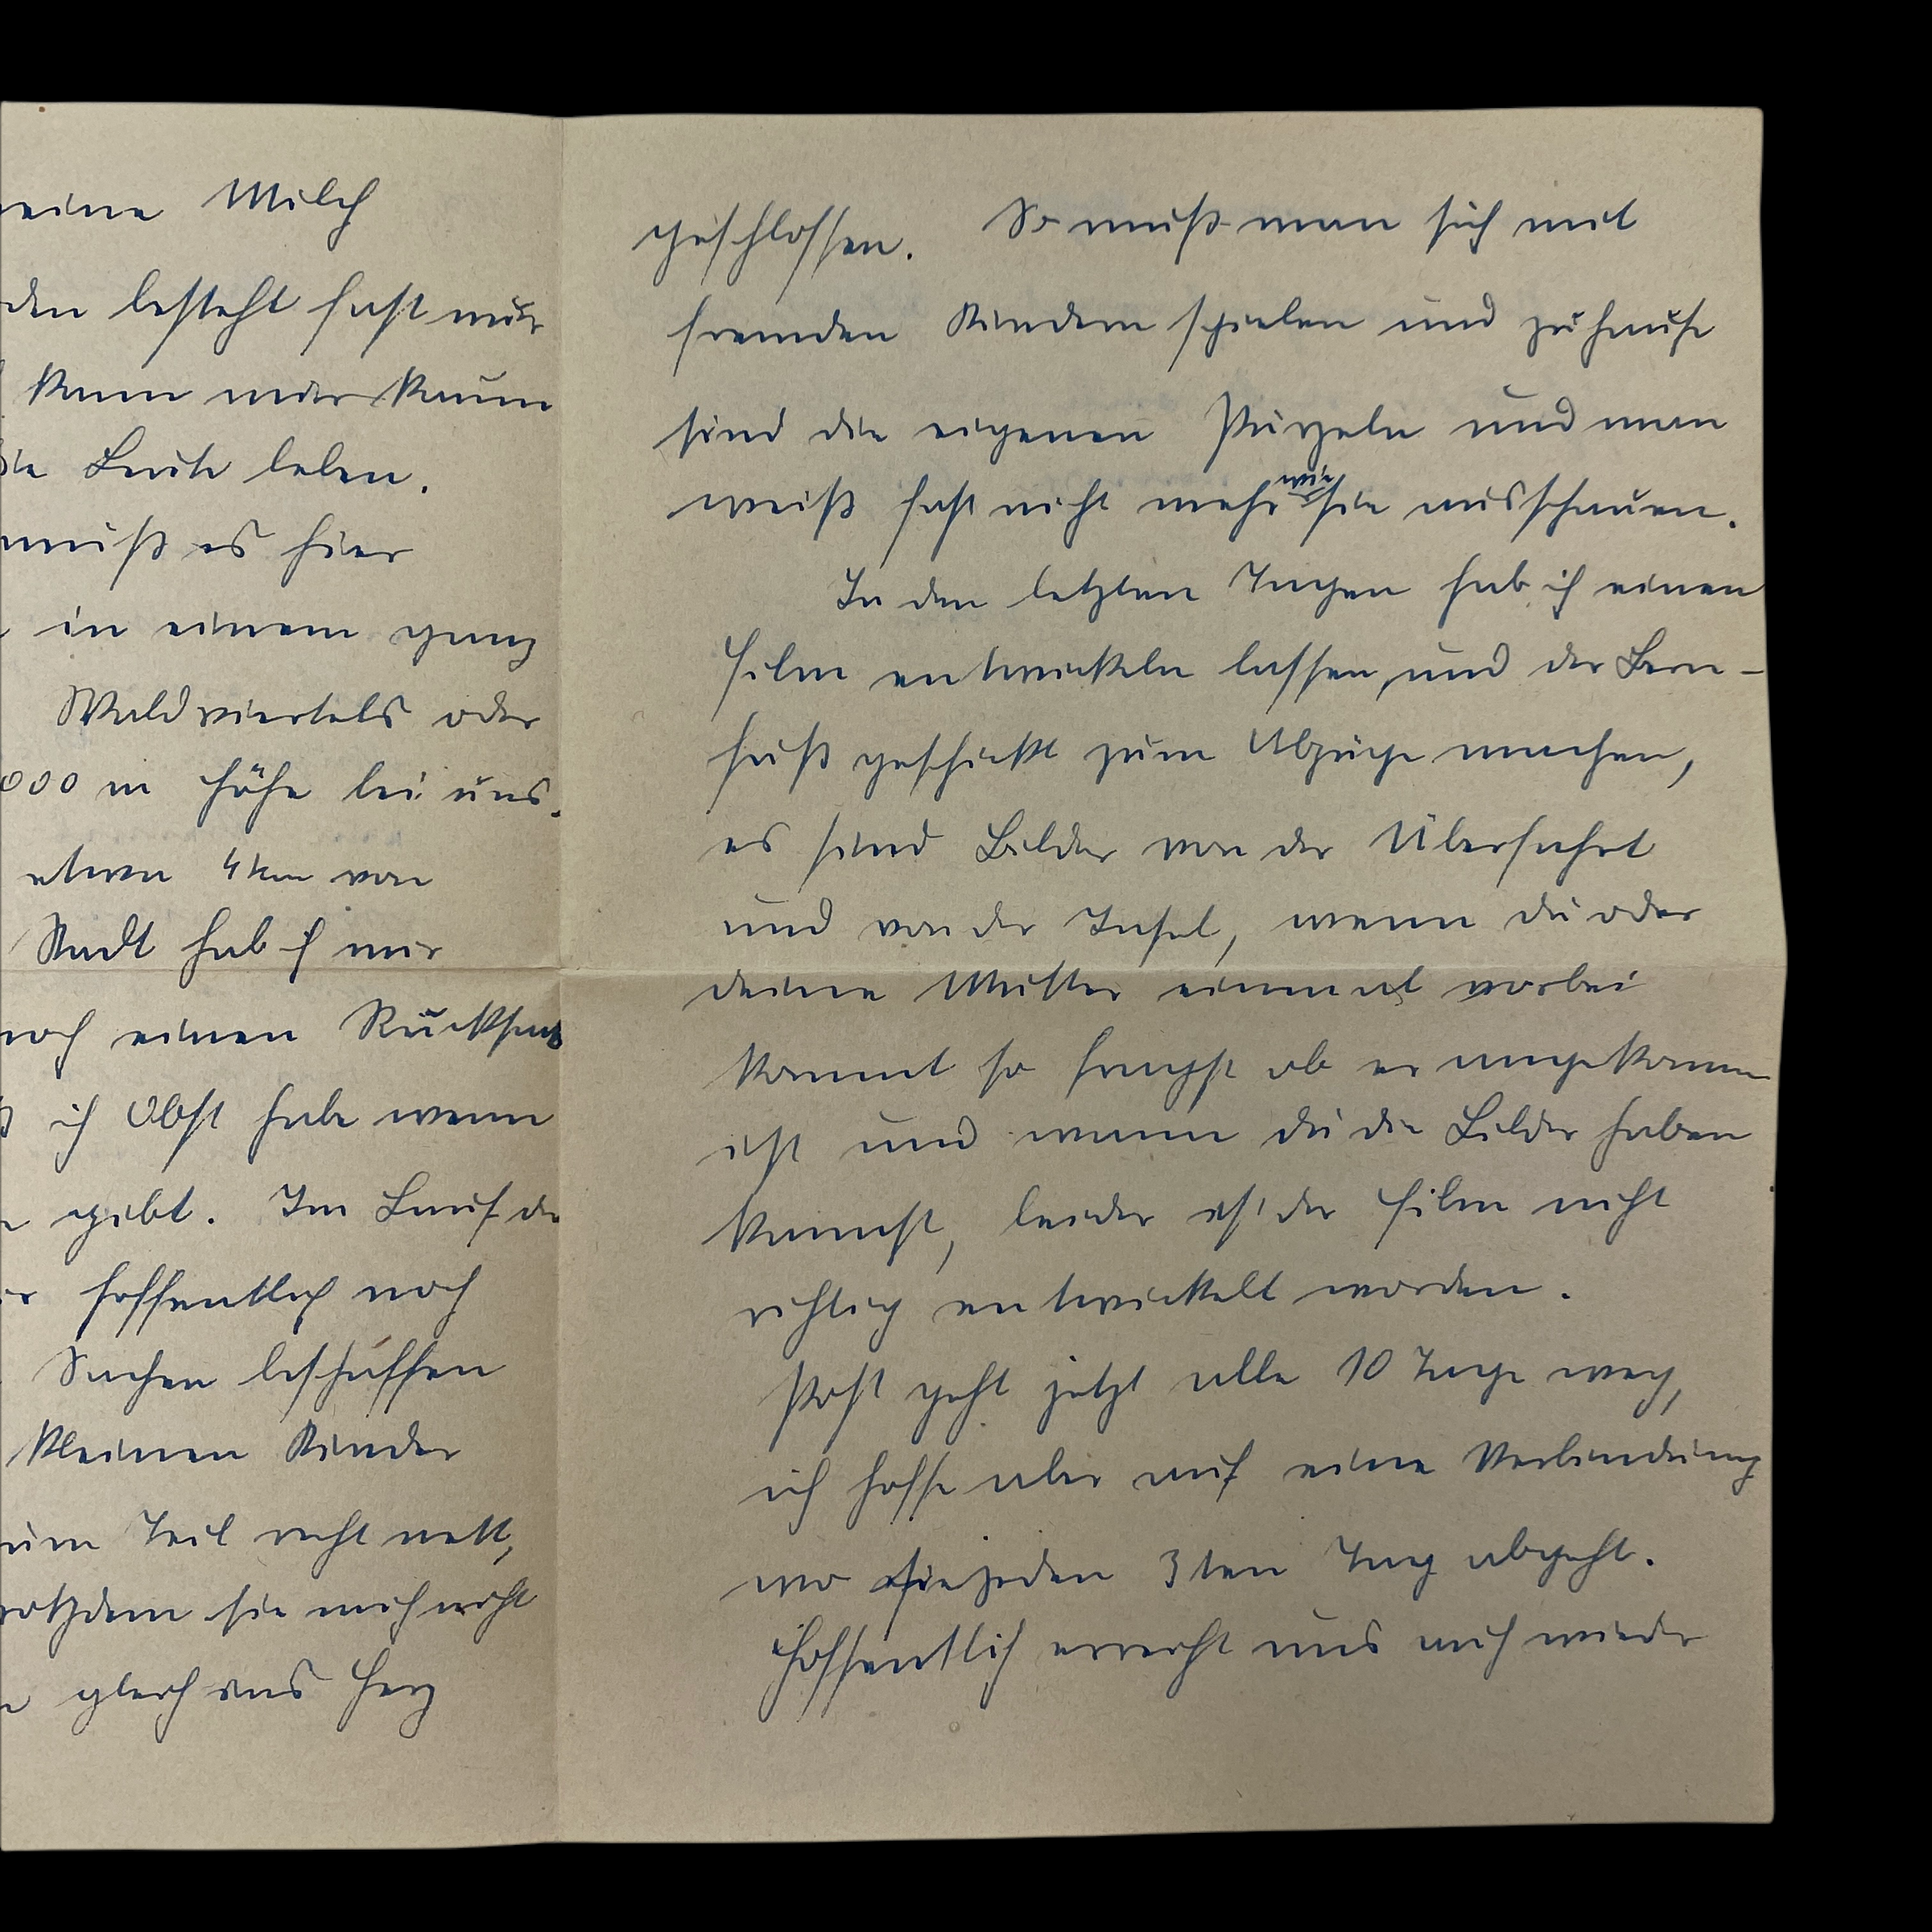 eine Milch
den besteht fast nur
kann man kaum
die Leute leben.
muß es hier
in einem ganz
Waldviertels oder
000 m Höhe bei uns.
etwa 4 km von
Stadt hab ich mir
noch einen Rucksack
ich Obst habe wenn
gibt. Im Lauf der
hoffentlich noch
Sachen beschaffen
kleinen Kinder
zum Teil recht nett,
trotzdem sie mich nicht
gleich ins Herz
geschlossen. So muß man sich mit
fremden Kindern spielen und zuhause
sind die eigenen Purzeln und man
weiß fast nicht mehr wie sie ausschauen.
In den letzten Tagen hab ich einen
Film entwickeln lassen, und der Bern-
fuß geschickt zum Abzüge machen,
es sind Bilder von der Überfahrt
und von der Insel, wenn du oder
deine Mutter einmal vorbei
kommt so fragst ob er angekommen
ist und wann du die Bilder haben
kannst, leider ist der Film nicht
richtig entwickelt worden.
Post geht jetzt alle 10 Tage weg,
ich hoffe aber auf eine Verbindung
wo sie jeden 3ten Tag abgeht.
Hoffentlich erreicht uns auch wieder